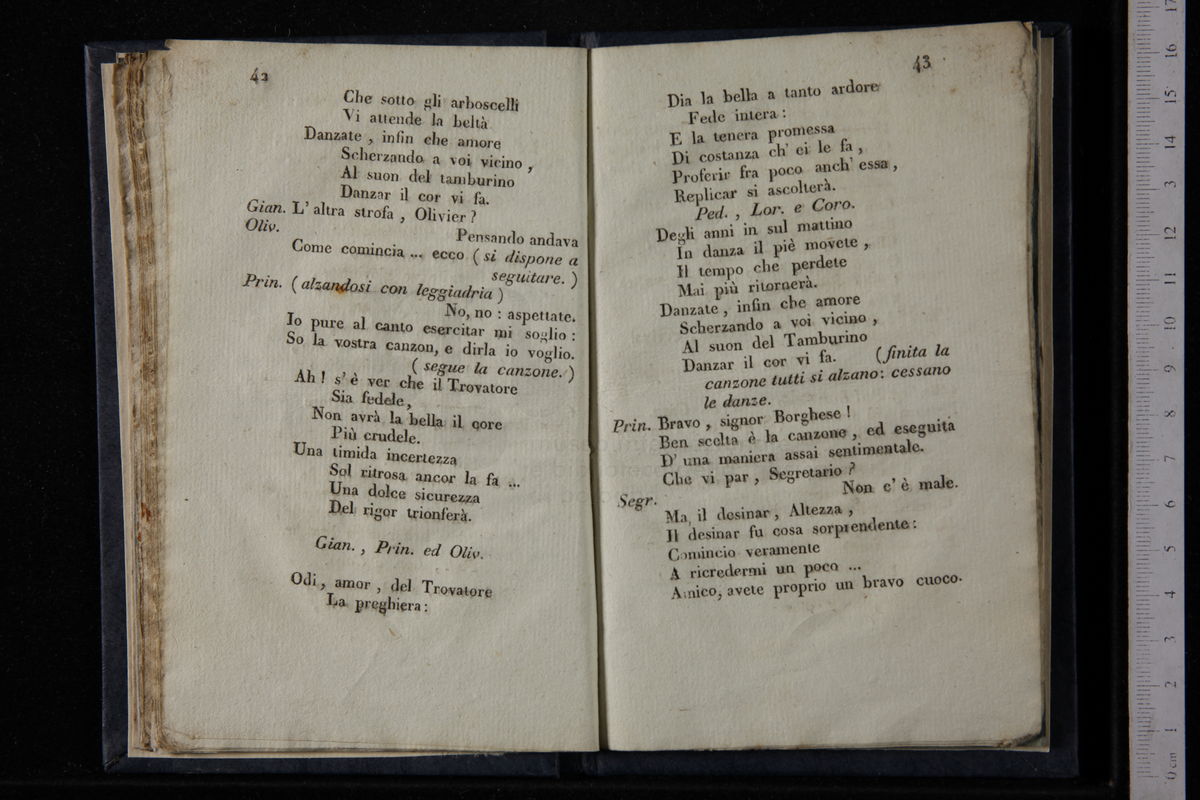 42
Che sotto gli arboscelli
Vi attende la beltà
Danzate , infin che amore
Scherzando a voi vicino ,
Al suon del tamburino
Danzar il cor vi fa.
Gian. L' altra strofa , Olivier ?
Oliv. Pensando andava
Come comincia ... ecco ( si dispone a
seguitare. )
Prin. ( alzandosi con leggiadria )
No, no : aspettate.
Io pure al canto esercitar mi soglio :
So la vostra canzon, e dirla io voglio.
( segue la canzone. )
Ah ! s' è ver che il Trovatore
Sia fedele,
Non avrà la bella il core
Più crudele.
Una timida incertezza
Sol ritrosa ancor la fa ...
Una dolce sicurezza
Del rigor trionferà.
Gian. , Prin. ed Oliv.
Odi, amor , del Trovatore
La preghiera :
43
Dia la bella a tanto ardore
Fede intera :
E la tenera promessa
Di costanza ch' ei le fa ,
Proferir fra poco anch' essa ,
Replicar si ascolterà.
Ped. , Lor. e Coro.
Degli anni in sul mattino
In danza il piè movete ,
Il tempo che perdete
Mai più ritornerà.
Danzate , infin che amore
Scherzando a voi vicino ,
Al suon del Tamburino
Danzar il cor vi fa. (finita la
canzone tutti si alzano: cessano
le danze.
Prin. Bravo , signor Borghese !
Ben scelta è la canzone , ed eseguita
D' una maniera assai sentimentale.
Che vi par , Segretario ?
Segr. Non c' è male.
Ma il desinar , Altezza ,
Il desinar fu cosa sorprendente :
Comincio veramente
A ricredermi un poco ...
Amico, avete proprio un bravo cuoco.
0 cm 1 2 3 4 5 6 7 8 9 10 11 12 3 14 15 16 17